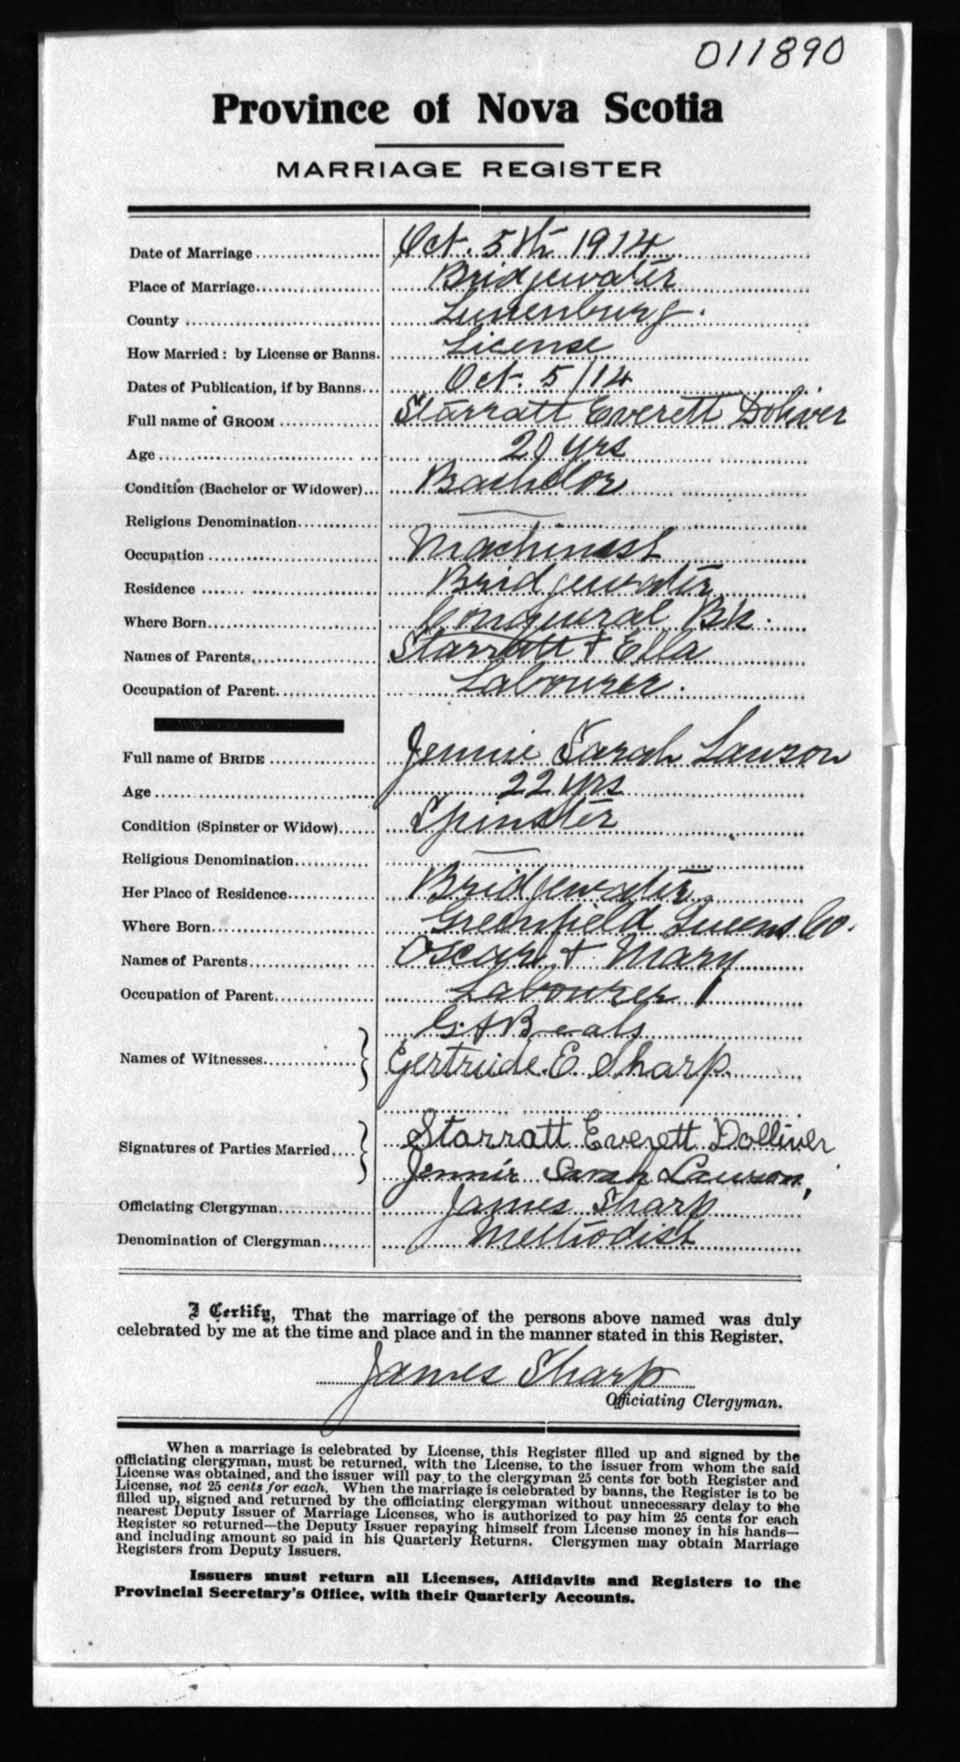 011890
Province of Nova Scotia
MARRIAGE REGISTER
Date of Marriage Oct. 5th 1914
Place of Marriage Bridgewater
County Lunenburg.
How Married: by License or Banns. License
Dates of Publication, if by Banns Oct. 5/14
Full name of GROOM Starratt Everett Doliver
Age 20 yrs
Condition (Bachelor or Widower) Bachelor
Religious Denomination —
Occupation Machinist
Residence Bridgewater
Where Born Conqueral Bk.
Names of Parents Starratt + Ella
Occupation of Parent Labourer.
Full name of BRIDE Jennie Sarah Lawson
Age 22 yrs
Condition (Spinster or Widow) Spinster
Religious Denomination —
Her Place of Residence Bridgewater
Where Born Greenfield Queens Co.
Names of Parents Oscar + Mary
Occupation of Parent Labourer
G. A Beals
Names of Witnesses Gertrude E. Sharp.
Signatures of Parties Married Starratt Everett Dolliver
Jennie Sarah Lawson,
Officiating Clergyman James Sharp
Denomination of Clergyman Methodist
I Certify, That the marriage of the persons above named was duly
celebrated by me at the time and place and in the manner stated in this Register.
James Sharp
Officiating Clergyman.
When a marriage is celebrated by License, this Register filled up and signed by the
officiating clergyman, must be returned, with the License, to the issuer from whom the said
License was obtained, and the issuer will pay to the clergyman 25 cents for both Register and
License, not 25 cents for each. When the marriage is celebrated by banns, the Register is to be
filled up, signed and returned by the officiating clergyman without unnecessary delay to the
nearest Deputy Issuer of Marriage Licenses, who is authorized to pay him 25 cents for each
Register so returned—the Deputy Issuer repaying himself from License money in his hands—
and including amount so paid in his Quarterly Returns. Clergymen may obtain Marriage
Registers from Deputy Issuers.
Issuers must return all Licenses, Affidavits and Registers to the
Provincial Secretary's Office, with their Quarterly Accounts.